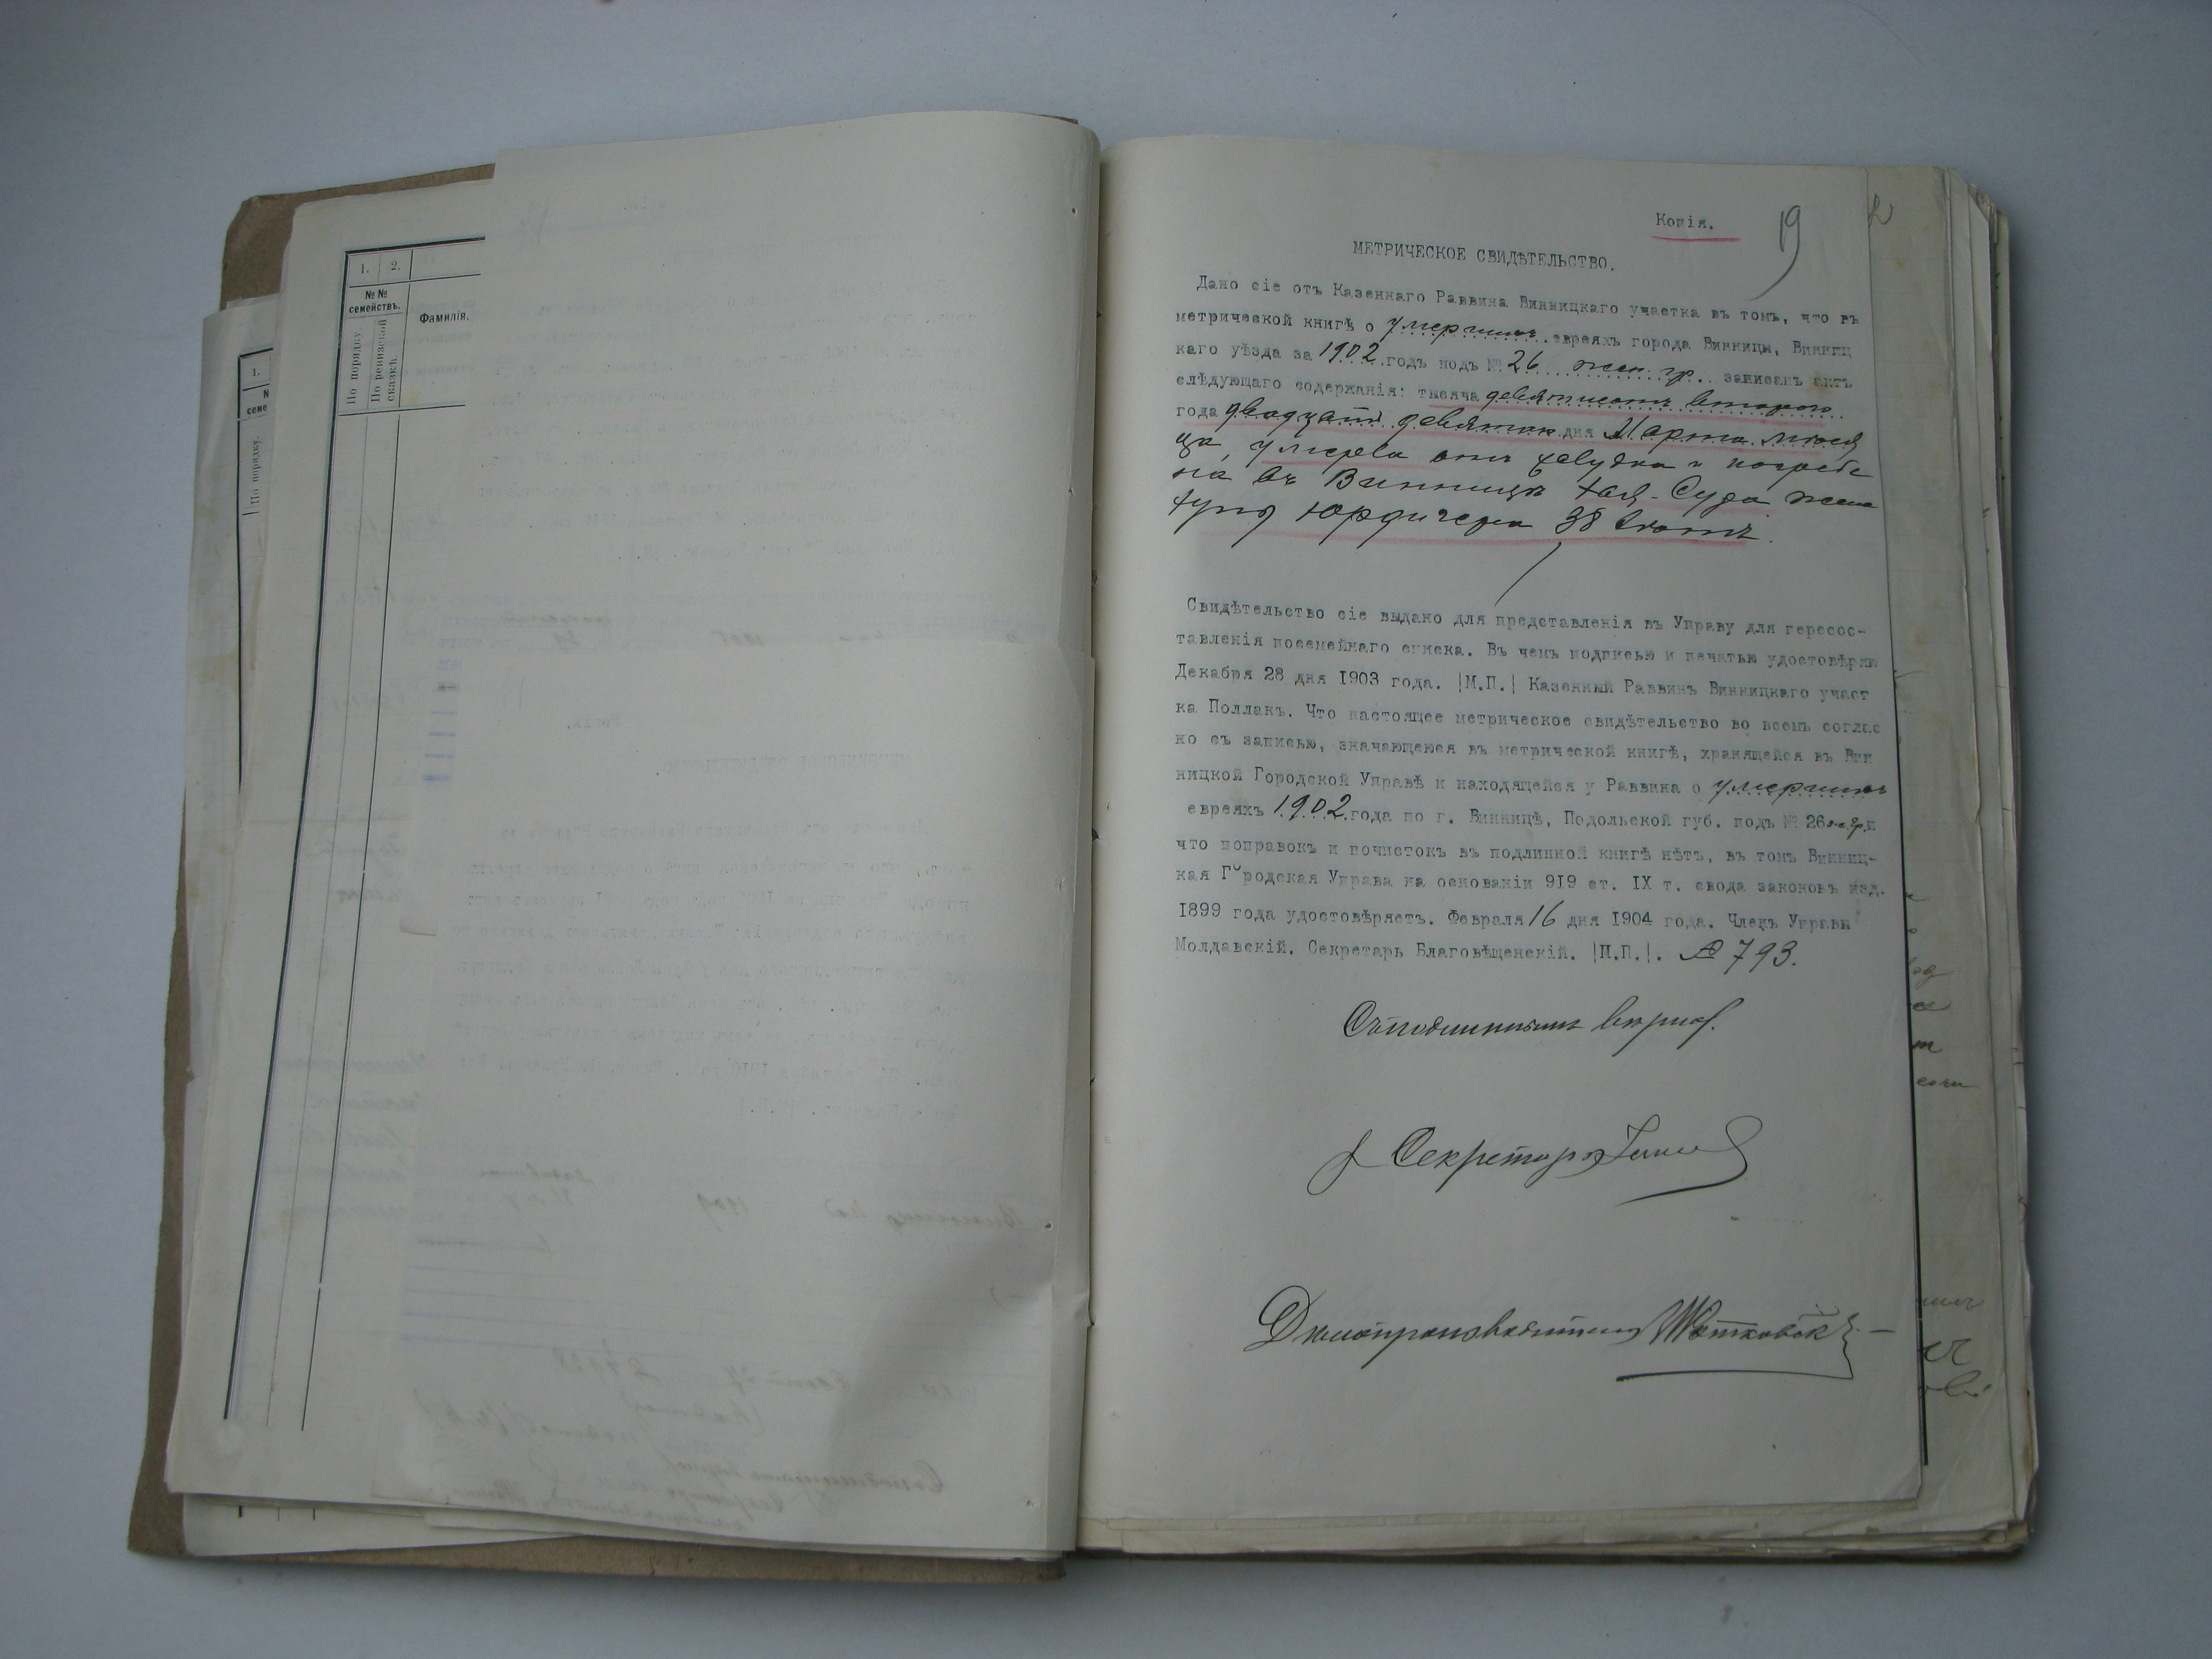 1. 2.
№ №
семействъ.
По порядку
По ревизской
сказкѣ.
Фамилія.
1.
семе
По порядку.
Копія.
19
МЕТРИЧЕСКОЕ СВИДѢТЕЛЬСТВО.
Дано сіе отъ Казеннаго Раввина Винницкаго участка въ томъ, что въ
метрической книгѣ о умершихъ евреяхъ города Винницы, Винниц
каго уѣзда за 1902 годъ подъ № 26 жен. гр. записанъ актъ
слѣдующаго содержанія: тысяча девятисотъ второго
года двадцать девятаго дня Марта мѣся
ца, умерла отъ желудка и погребе
на въ Винницѣ Хая-Суда жена
Юрдичера 38 лѣтъ.
Свидѣтельство сіе выдано для представленія въ Управу для пересос-
тавленія посемейнаго списка. Въ чемъ подписью и печатью удостовѣряю
Декабря 28 дня 1903 года. |М.П.| Казенный Раввинъ Винницкаго участ
ка Поллакъ. Что настоящее метрическое свидѣтельство во всемъ соглас
но съ записью, значающеюся въ метрической книгѣ, хранящейся въ Вин
ницкой Городской Управѣ и находящейся у Раввина о умершихъ
евреяхъ 1902 года по г. Винницѣ, Подольской губ. подъ № 26 ж. гр. и
что поправокъ и почистокъ въ подлинной книгѣ нѣтъ, въ томъ Винниц-
кая Городская Управа на основаніи 919 ст. IX т. свода законовъ изд.
1899 года удостовѣряетъ. Февраля 16 дня 1904 года. Членъ Управы
Молдавскій. Секретарь Благовѣщенскій. |М.П.|. № 793.
Съ подлиннымъ вѣрно.
Секретарь
Дѣлопроизводитель